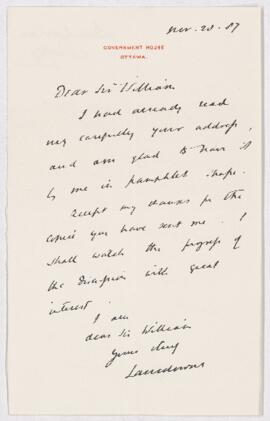 Nov. 23. 87
GOVERNMENT HOUSE
OTTAWA.
Dear Sir William
I had already read
very carefully your address,
and am glad to have it
by me in pamphlet shape.
Accept my thanks for the
copies you have sent me. I
shall watch the progress of
the discussion with great
interest.
I am
dear Sir William
yours truly
Lansdowne